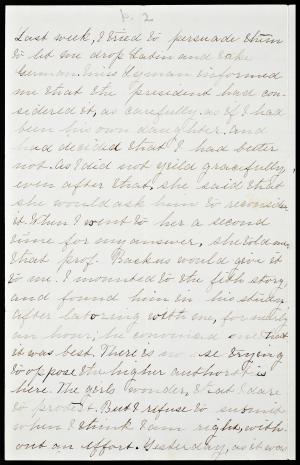 p. 2
Last week, I tried to persuade them
to let me drop Latin and take
German. Miss Lyman informed
me that the President had con-
sidered it, as carefully, as if I had
been his own daughter, and
had decided that I had better
not. As I did not yeild gracefully,
even after that, she said that
she would ask him to reconsider
it. When I went to her a second
time for my answer, she told me,
that Prof. Backus would give it
to me. I mounted to the fifth story,
and found him in his study,
after laboring with me, for nearly
an hour, he convinced me that
it was best. There is no use trying
to oppose the higher authorities
here. The girls wonder, that I dare
to protest. But I refuse to submit
when I think I am right, with-
out an effort. Yesterday, as it was